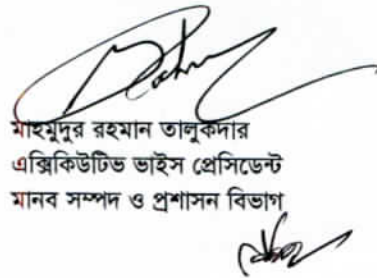 মাহমুদুর রহমান তালুকদার
এক্সিকিউটিভ ভাইস প্রেসিডেন্ট
মানব সম্পদ ও প্রশাসন বিভাগ